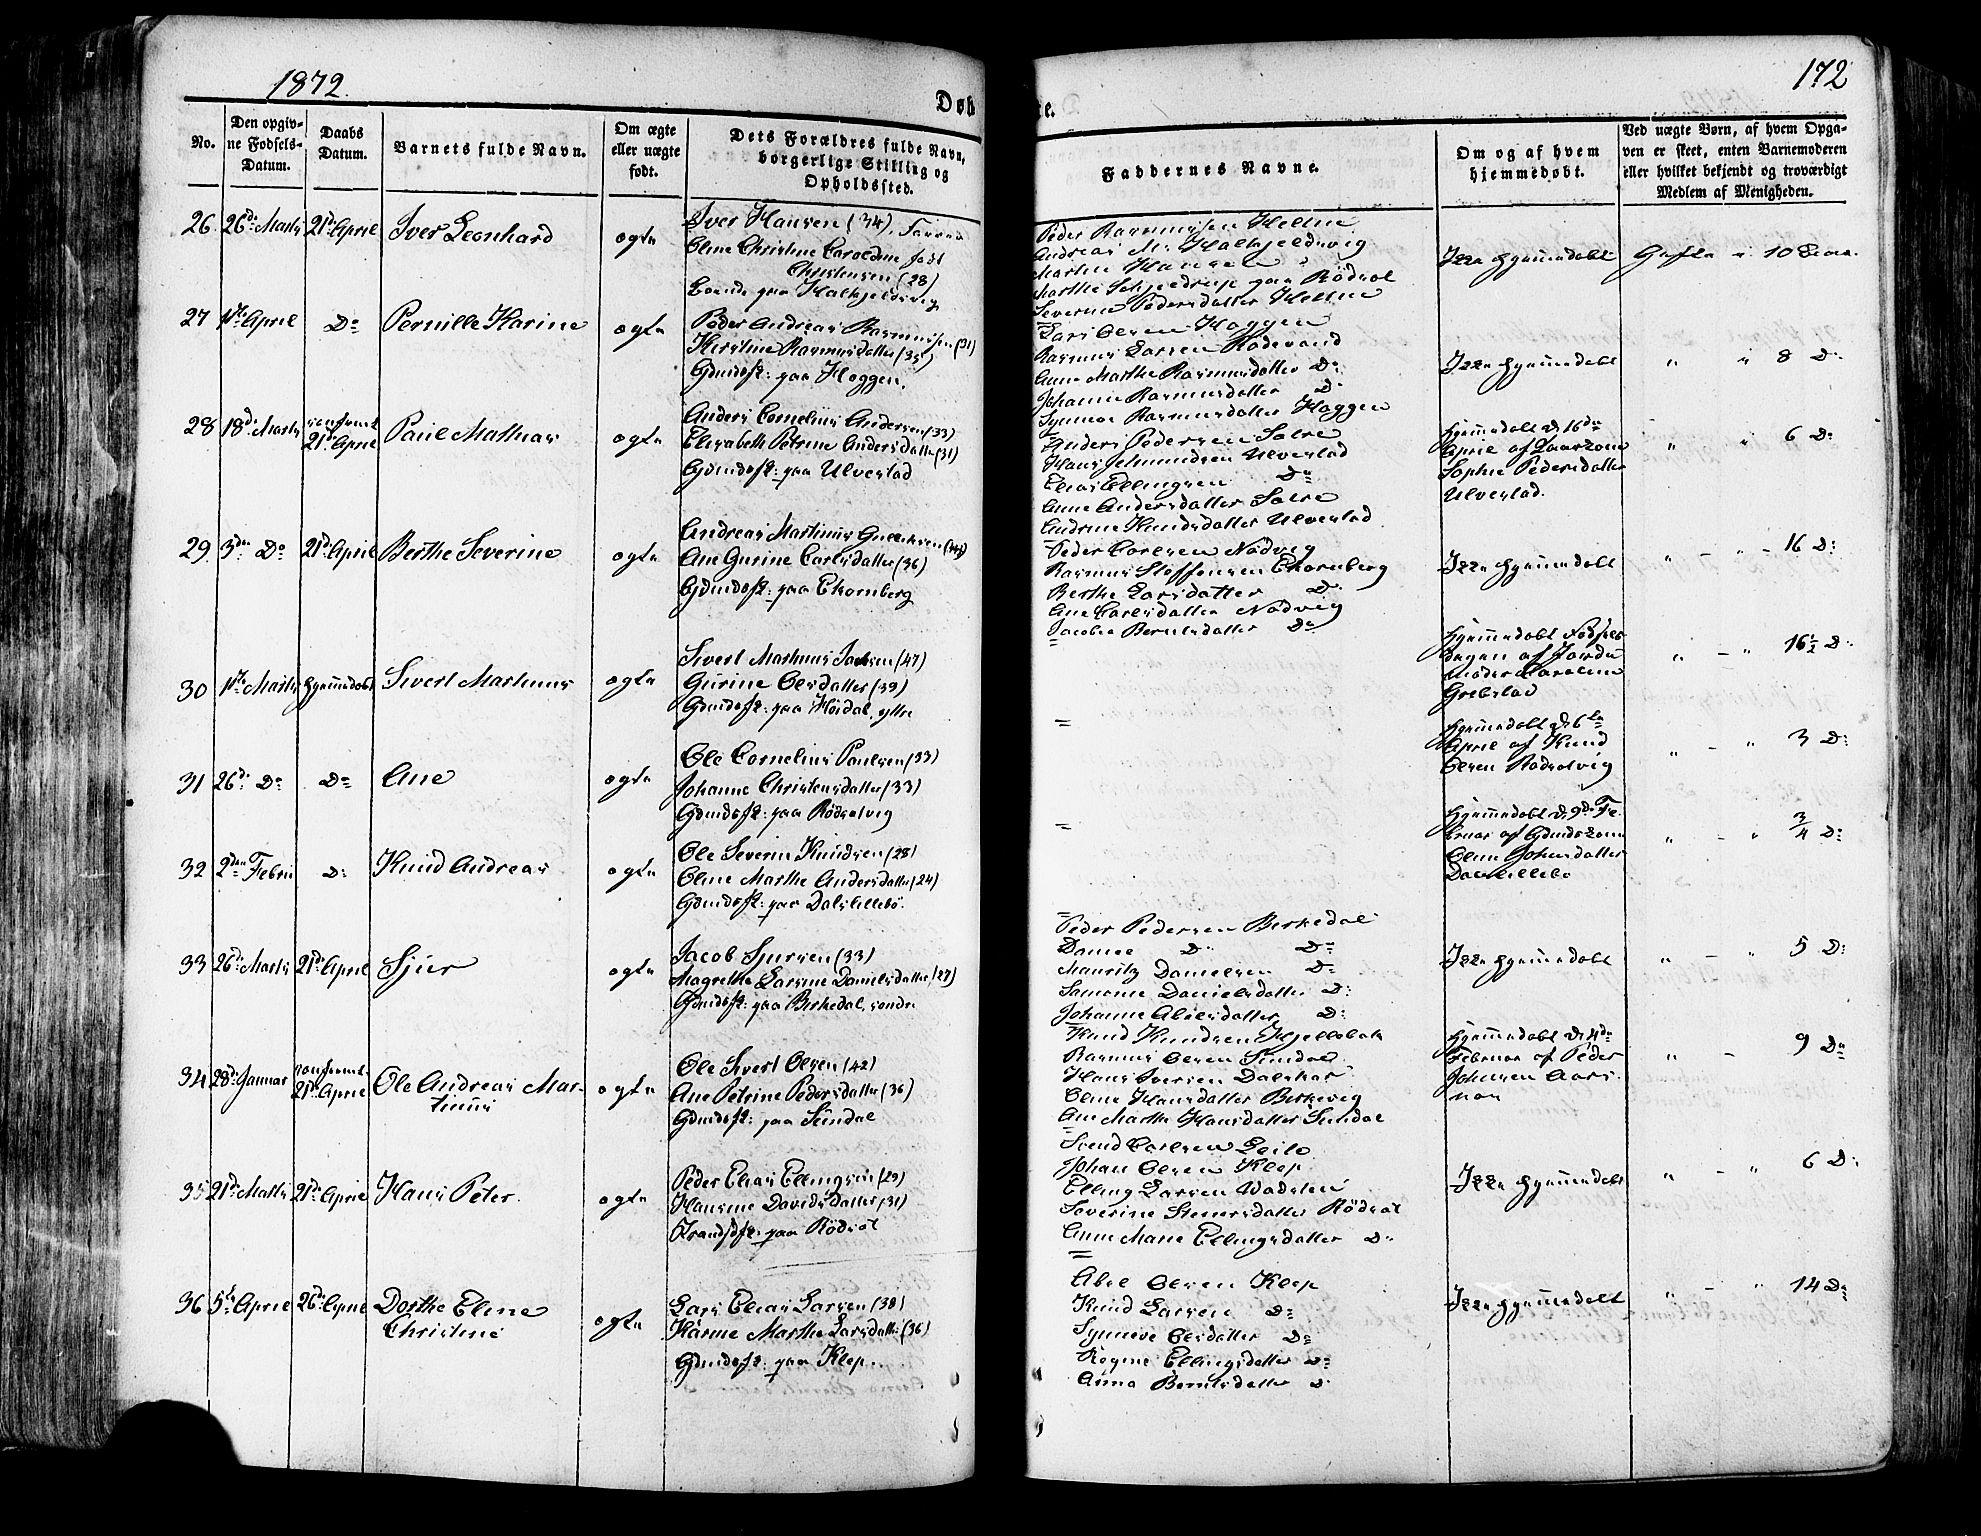 1872.
Døb
te.
172
No.
Den opgiv-
ne Fødsels-
Datum.
Daabs
Datum.
Barnets fulde Navn.
Om ægte
eller uægte
født.
Dets Forældres fulde Navn,
borgerlige Stilling og
Opholdssted.
Faddernes Navne.
Om og af hvem
hjemmedøbt.
Ved uægte Børn, af hvem Opga-
ven er skeet, enten Barnemoderen
eller hvilket bekjendt og troværdigt
Medlem af Menigheden.
26. 26de Marts 21de April Iver Leonhard ægte
Iver Hansen (34),
Oline Christine Caroline født
Christensen (28)
Boende paa Halkjeldsvig
Peder Rasmussen Heltne
Andreas M. Halkjeldsvig
Martin Hansen
Marthe Schjeldrup paa Rødsæt
Severine Pedersdatter Heltne
Ikke hjemmedøbt
Gifte i 10 Aar.
27 1ste April Do Pernille Karine ægte
Peder Andreas Rasmussen (31)
Kirstine Rasmusdatter (35)
Gdmdsfk: paa Haggen.
Lars Olsen Haggen
Rasmus Larsen Rødesand
Anne Marthe Rasmusdatter Do
Johanne Rasmusdatter Do
Synnøe Rasmusdatter Haggen
Ikke hjemmedøbt
" " 8 D:
28 18de Marts confirmt
21de April
Paul Mathias ægte
Anders Cornelius Andersen (33)
Elisabeth Petrine Andersdatter (31)
Gdmdsfk: paa Ulvestad
Anders Pedersen Sætre
Hans Amundsen Ulvestad
Elias Ellingsen Do
Anne Andersdatter Sætre
Andrine Knudsdatter Ulvestad
hjemmedøbt d. 16de
April af
Sophie Pedersdatter
Ulvestad.
" " 6 D:
29. 3die Do 21de April Berthe Severine ægte
Andreas Martinus
Ane Gurine Carlsdatter (36)
Gdmdsfk: paa Ekornberg
Peder Carlsen Nødvig
Rasmus Steffensen Ekornberg
Berthe Larsdatter D:
Ane Carlsdatter Nødvig
Jacobea Berntsdatter Do
Ikke hjemmedøbt
" - " - 16 D:
30 1ste Marts hjemmedøbt Sivert Martinus ægte
Sivert Martinus (47)
Gurine Olsdatter (39)
Gdmdsfk: paa Høidal, ytre
hjemmedøbt Fødsels-
dagen af Jorde-
moder Caroline
Grebstad
" - " 16½ D:
31 26de Do Do Ane ægte
Ole Cornelius Paulsen (33)
Johanne Christensdatter (33)
Gdmdsfk: paa Rødsætvig
hjemmedøbt d. 6te
April af Knud
Olsen Rødsætvig
" - " 3 D:
32 2den Febru D: Knud Andreas ægte
Ole Severin Knudsen (28)
Oline Marthe Andersdatter (24)
Gdmdsfk: paa Dalslillebø.
hjemmedøbt d. 9de Fe-
bruar af
Oline Johansdatter
Dalslillebø
" - " 3/4 D:
33 26de Marts 21de April Sjur ægte
Jacob Sjursen (33)
Magrethe Larsine Danielsdatter (27)
Gdmdsfk: paa Birkedal, søndre
Peder Pedersen Birkedal
Daniel D: Do
Mauritz Danielsen D:
Samone Danielsdatter D:
Johanne Abelsdatter D:
Ikke hjemmedøbt
" - " 5 D:
34 28de Januar confirmt
21de April
Ole Andreas Mar-
tinus
ægte
Ole Sivert Olsen (42)
Ane Petrine Pedersdatter (36)
Gdmdsfk: paa Sundal
Knud Knudsen Hjellebak
Rasmus Olsen Sundal
Hans Iversen Dalskar
Oline Hansdatter Birkevig
Ane Marthe Hansdatter Sundal
hjemmedøbt d. 4de
Februar af Peder
Johnsen Aars-
næs
" - 9 Do
35 21de Marts 21de April Hans Peter ægte
Peder Elias Ellingsen (29)
Hansine Davidsdatter (31)
Strandsdfk: paa Rødsæt
Svend Carlsen Leite
Johan Olsen Klep
Elling Larsen Vadsten
Severine Stenersdatter Rødsæt
Anne Marie Ellingsdatter D:
Ikke hjemmedøbt
" - " 6 D:
36 5te April 26de April Dorthe Eline
Christine
ægte
Lars Elias Larsen (38)
Karine Marthe Larsdatter (36)
Gdmdsfk: paa Klep.
Abel Olsen Klep
Knud Larsen Do
Synneve Olsdatter Do
Ragne Ellingsdatter Do
Anna Berntsdatter D
Ikke hjemmedøbt
" - " 14 Do